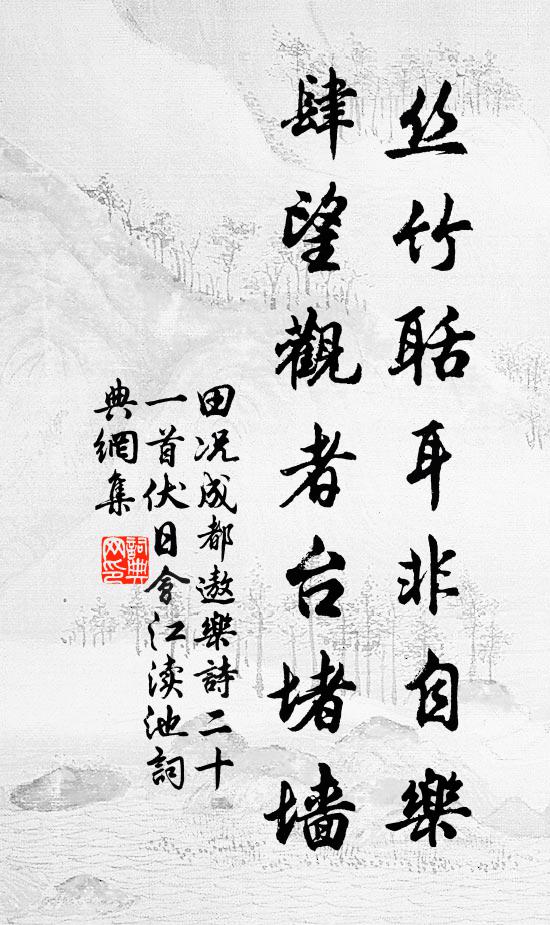 丝竹聒耳非自樂
肆望觀者台堵墙
田况成都遨樂詩二十
一首伏日會江渎池詞
典網集
詞典
网印